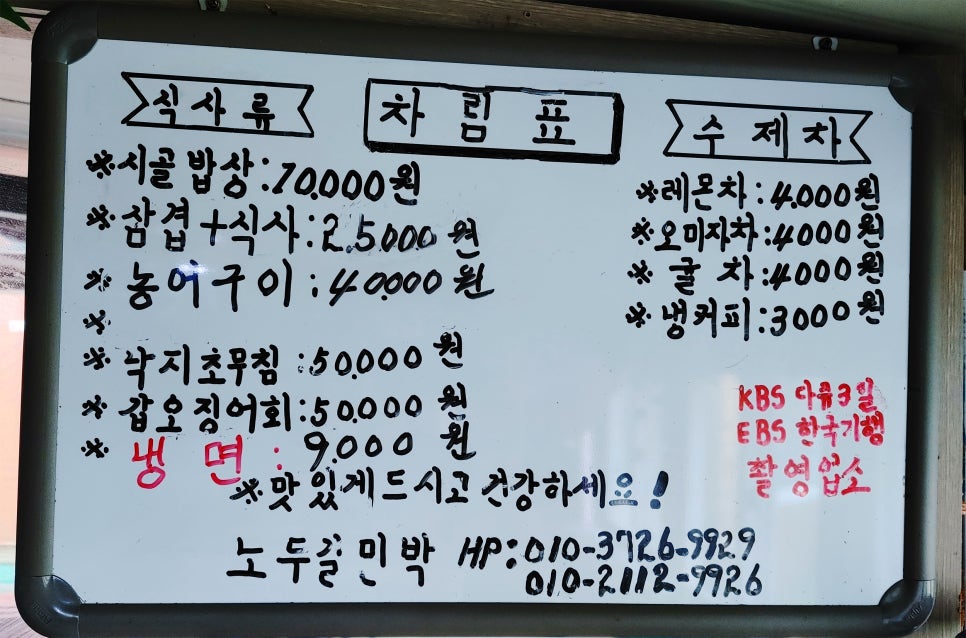 차림표
식사류
※시골밥상:10.000원
※삼겹+식사:25.000원
※농어구이:40.000원
※
※낙지초무침:50.000원
※갑오징어회:50.000원
※냉면:9.000원
수제차
※레몬차:4.000원
※오미자차:4000원
※귤차:4000원
※냉커피:3000원
KBS 다큐3일
EBS 한국기행
촬영업소
※맛있게드시고 건강하세요!
노두길민박 HP:010-3726-9929
010-2112-9926